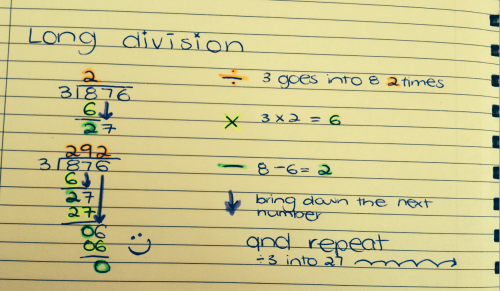 Long division
2
3)876
6↓
27
292
3)876
6↓
27
27↓
06
06
0
÷ 3 goes into 8 2 times
× 3 x 2 = 6
− 8 − 6 = 2
↓ bring down the next
number
and repeat
÷3 into 27